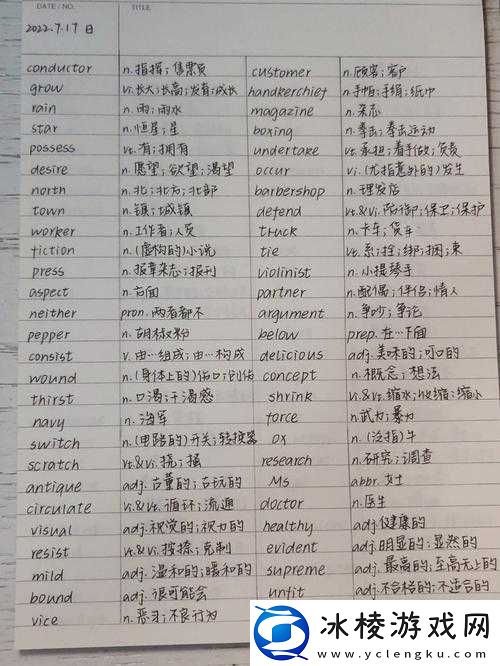 DATE / NO.
TITLE
2022.7.17 日
conductor n. 指挥；售票员 customer n. 顾客；客户
grow vi. 长大；长高；发育；成长 handkerchief n. 手帕；手绢；纸巾
rain n. 雨；雨水 magazine n. 杂志
star n. 恒星；星 boxing n. 拳击；拳击运动
possess vt. 有；拥有 undertake vt. 承担；着手做；负责
desire n. 愿望；欲望；渴望 occur vi. (尤指意外的)发生
north n. 北；北方；北部 barbershop n. 理发店
town n. 镇；城镇 defend vt.&vi. 防御；保卫；保护
worker n. 工作者；人员 truck n. 卡车；货车
fiction n. (虚构的)小说 tie vt. 系；拴；绑；捆；束
press n. 报章杂志；报刊 violinist n. 小提琴手
aspect n. 方面 partner n. 配偶；伴侣；情人
neither pron. 两者都不 argument n. 争吵；争论
pepper n. 胡椒粉 below prep. 在…下面
consist v. 由…组成；由…构成 delicious adj. 美味的；可口的
wound n. (身体上的)伤口；创伤 concept n. 概念；想法
thirst n. 口渴；干渴感 shrink vi.&vt. 缩水；收缩；缩小
navy n. 海军 force n. 武力；暴力
switch n. (电路的)开关；转换器 ox n. (泛指)牛
scratch vt.&vi. 挠；搔 research n. 研究；调查
antique adj. 古董的；古玩的 Ms abbr. 女士
circulate vi.&vt. 循环；流通 doctor n. 医生
visual adj. 视觉的；视力的 healthy adj. 健康的
resist vt.&vi. 按捺；克制 evident adj. 明显的；显然的
mild adj. 温和的；暖和的 supreme adj. 最高的；至高无上的
bound adj. 很可能会 unfit adj. 不合格的；不适合的
vice n. 恶习；不良行为
冰棱游戏网
www.yclengku.com